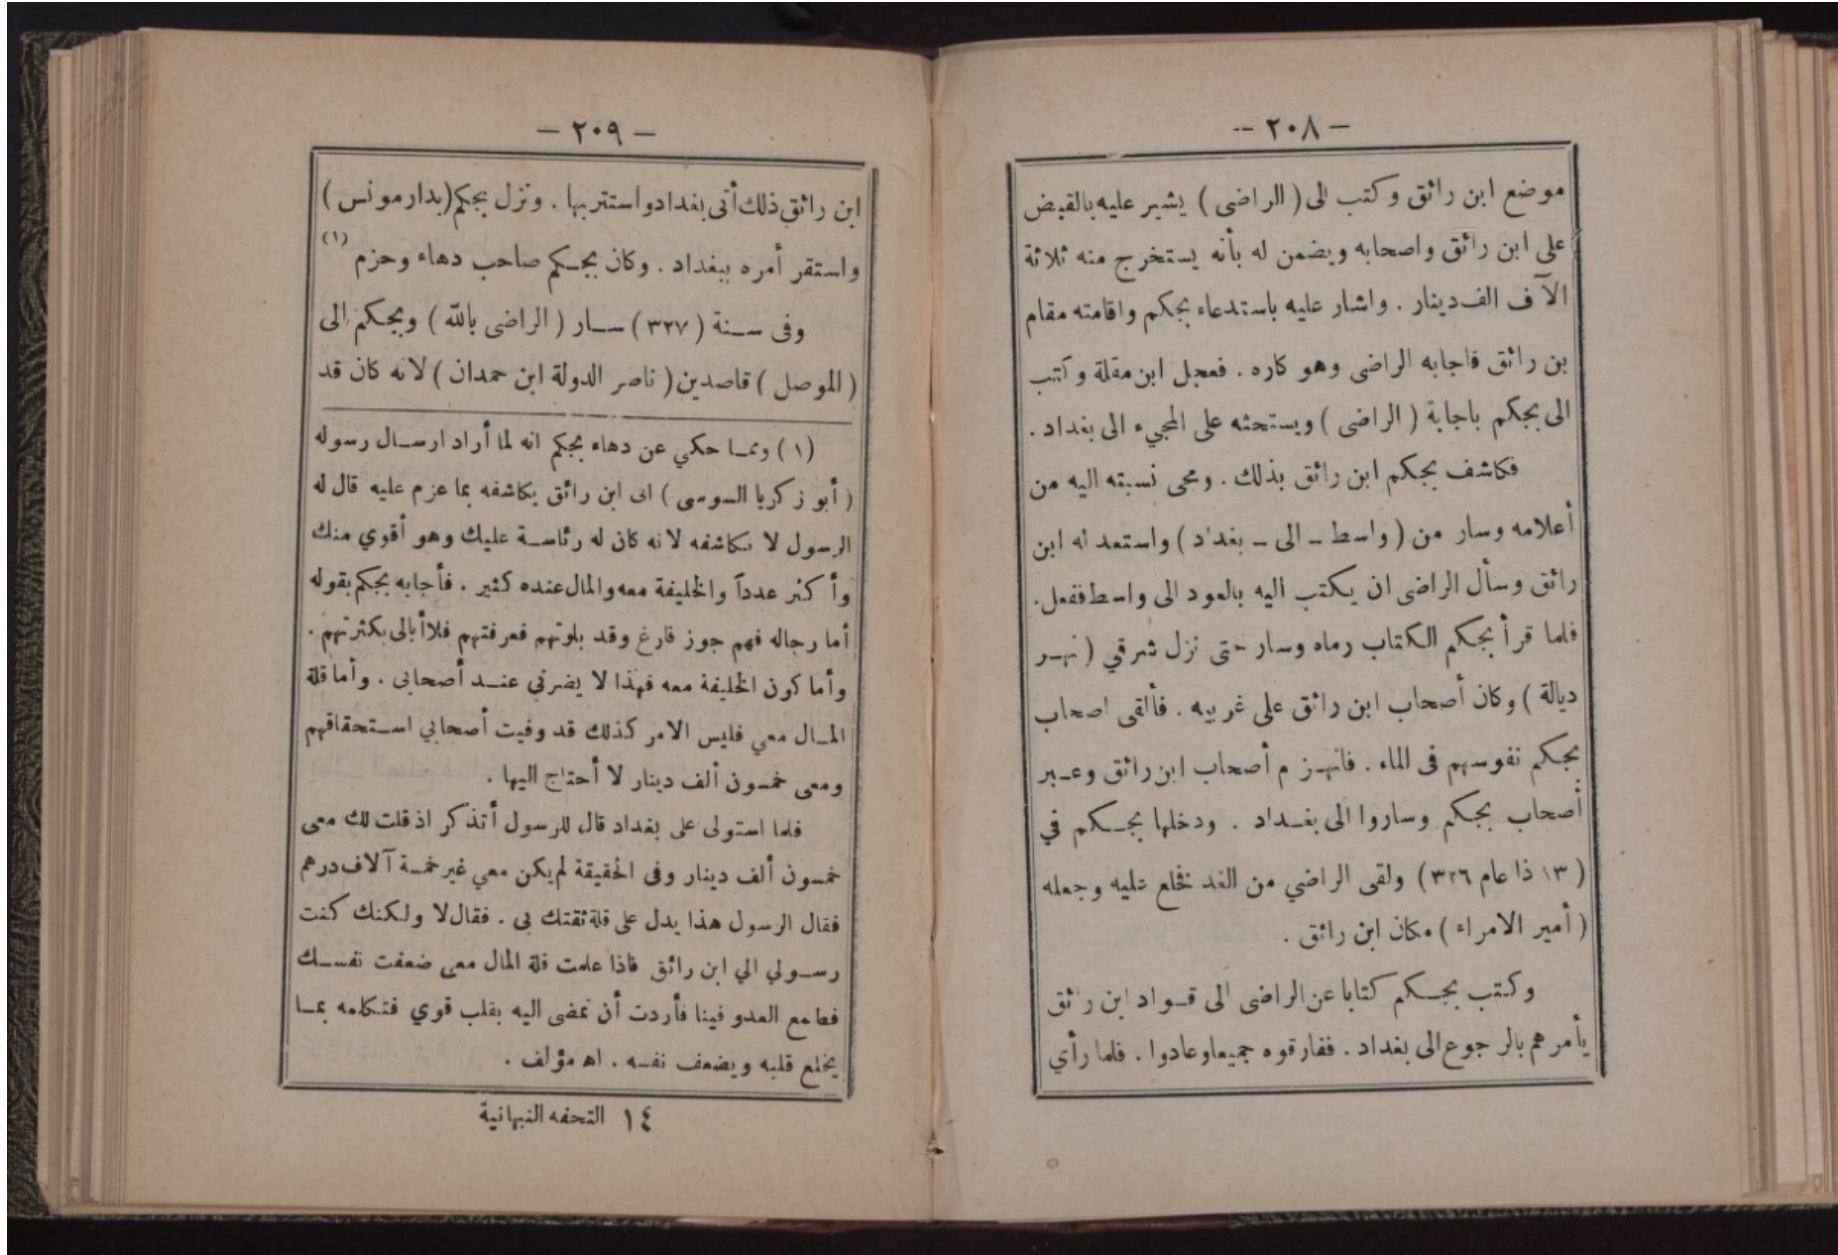 — ٢٠٨ —
موضع ابن رائق وكتب الى ( الراضى ) يشير عليه بالقبض
على ابن رائق واصحابه ويضمن له بأنه يستخرج منه ثلاثة
الآف الف دينار . واشار عليه باستدعاء بجكم واقامته مقام
بن رائق فاجابه الراضى وهو كاره . فعجل ابن مقلة وكتب
الى بجكم باجابة ( الراضى ) ويستحثه على المجيء الى بغداد .
فكاشف بجكم ابن رائق بذلك . ومحى نسبته اليه من
أعلامه وسار من ( واسط ـ الى ـ بغداد ) واستعد له ابن
رائق وسأل الراضى ان يكتب اليه بالعود الى واسط ففعل .
فلما قرأ بجكم الكتاب رماه وسار حتى نزل شرقي ( نهـر
ديالة ) وكان أصحاب ابن رائق على غربيه . فألقى اصحاب
بجكم نفوسهم فى الماء . فانهـزم أصحاب ابن رائق وعـبر
أصحاب بجكم وساروا الى بغـداد . ودخلها بجـكم في
( ١٣ ذا عام ٣٢٦ ) ولقى الراضي من الغد فخلع عليه وجعله
( أمير الامراء ) مكان ابن رائق .
وكتب بجـكم كتابا عن الراضى الى قـواد ابن رائق
يأمرهم بالرجوع الى بغداد . ففارقوه جميعا وعادوا . فلما رأي
— ٢٠٩ —
ابن رائق ذلك أتى بغداد واستتر بها . ونزل بجكم ( بدار مونس )
واستقر أمره ببغداد . وكان بجـكم صاحب دهاء وحزم (١)
وفى سـنة ( ٣٢٧ ) سـار ( الراضى بالله ) وبجـكم الى
( الموصل ) قاصدين ( ناصر الدولة ابن حمدان ) لانه كان قد
(١) وممـا حكي عن دهاء بجكم انه لما أراد ارسـال رسوله
( أبو زكريا السوسى ) الى ابن رائق يكاشفه بما عزم عليه قال له
الرسول لا تكاشفه لانه كان له رئاسـة عليك وهو أقوي منك
وأكثر عدداً والخليفة معه والمال عنده كثير . فأجابه بجكم بقوله
أما رجاله فهم جوز فارغ وقد بلوتهم فعرفتهم فلا أبالى بكثرتهم .
وأما كون الخليفة معه فهذا لا يضرني عنـد أصحابى . وأما قلة
المـال معي فليس الامر كذلك قد وفيت أصحابي اسـتحقاقهم
ومعى خمسون ألف دينار لا أحتاج اليها .
فلما استولى على بغداد قال للرسول أتذكر اذ قلت لك معى
خمسون ألف دينار وفى الحقيقة لم يكن معي غير خمسة آلاف درهم
فقال الرسول هذا يدل على قلة ثقتك بى . فقال لا ولكنك كنت
رسـولي الي ابن رائق فاذا علمت قلة المال معى ضعفت نفسـك
فطامع العدو فينا فأردت أن تمضى اليه بقلب قوي فتكلمه بمـا
يخلع قلبه ويضعف نفسه . اه مؤلف .
١٤ التحفه النبهانية